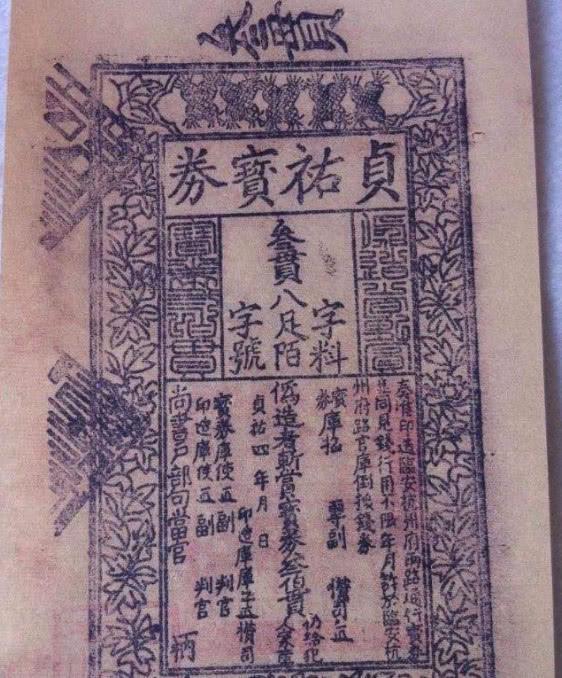 叁貫
貞祐寶券
字料
叁貫八足陌
字號
奏准印造臨安杭州府兩路通行寶券
並同見錢行用不限年月許於臨安杭
州府路官庫倒換錢券
寶券庫掐 專副 攢司
偽造者斬賞寶券叁佰貫 仍給犯人家產
貞祐四年 月 日
印造庫庫子 攢司
寶券庫使 副 判官
印造庫使 副 判官
尚書戶部勾當官